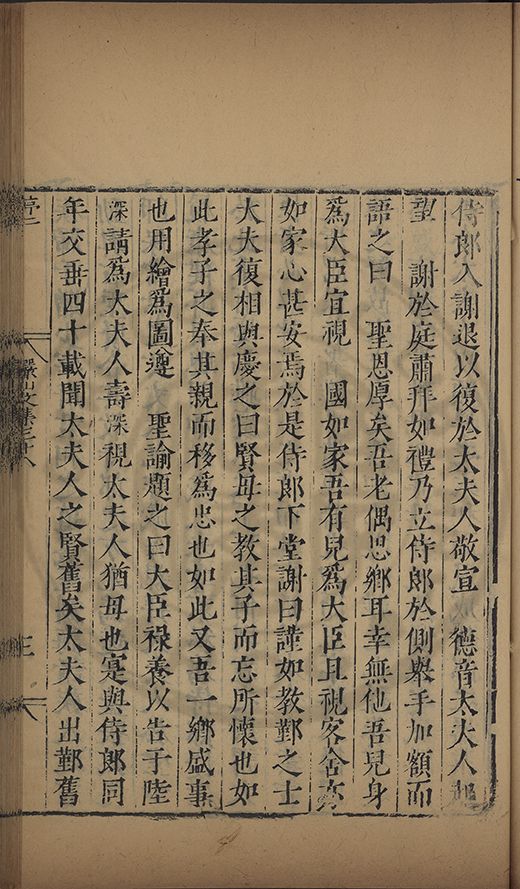 侍郎入謝退以復於太夫人敬宣 德音太夫人起
望 謝於庭肅拜如禮乃立侍郎於側舉手加額而
語之曰 聖恩厚矣吾老偶思鄉耳幸無他吾兒身
爲大臣宜視 國如家吾有兒爲大臣且視客舍亦
如家心甚安焉於是侍郎下堂謝曰謹如教鄞之士
大夫復相與慶之曰賢母之教其子而忘所懷也如
此孝子之奉其親而移爲忠也如此又吾一鄉盛事
也用繪爲圖遵 聖諭題之曰大臣祿養以告于陸
深請爲太夫人壽深視太夫人猶母也寔與侍郎同
年交垂四十載聞太夫人之賢舊矣太夫人出鄞舊
三